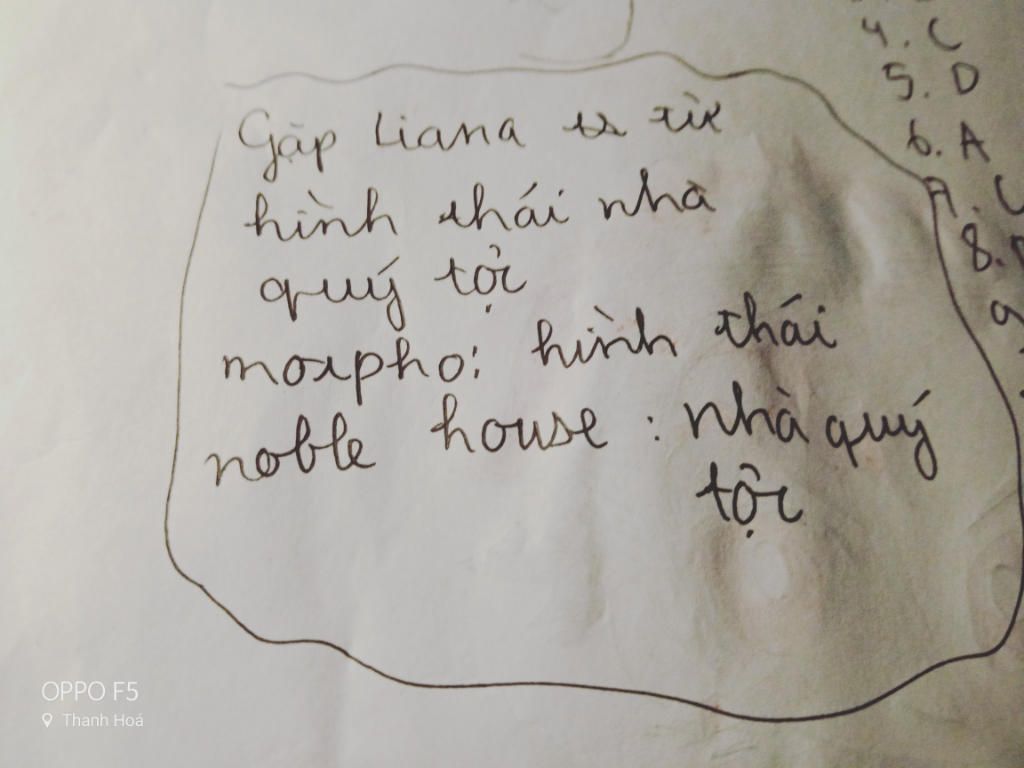 4. C
5. D
6. A
7. C
8.
9
Gặp Liana ts từ
hình thái nhà
quý tộc
morpho: hình thái
noble house : nhà quý
tộc
OPPO F5
Thanh Hoá